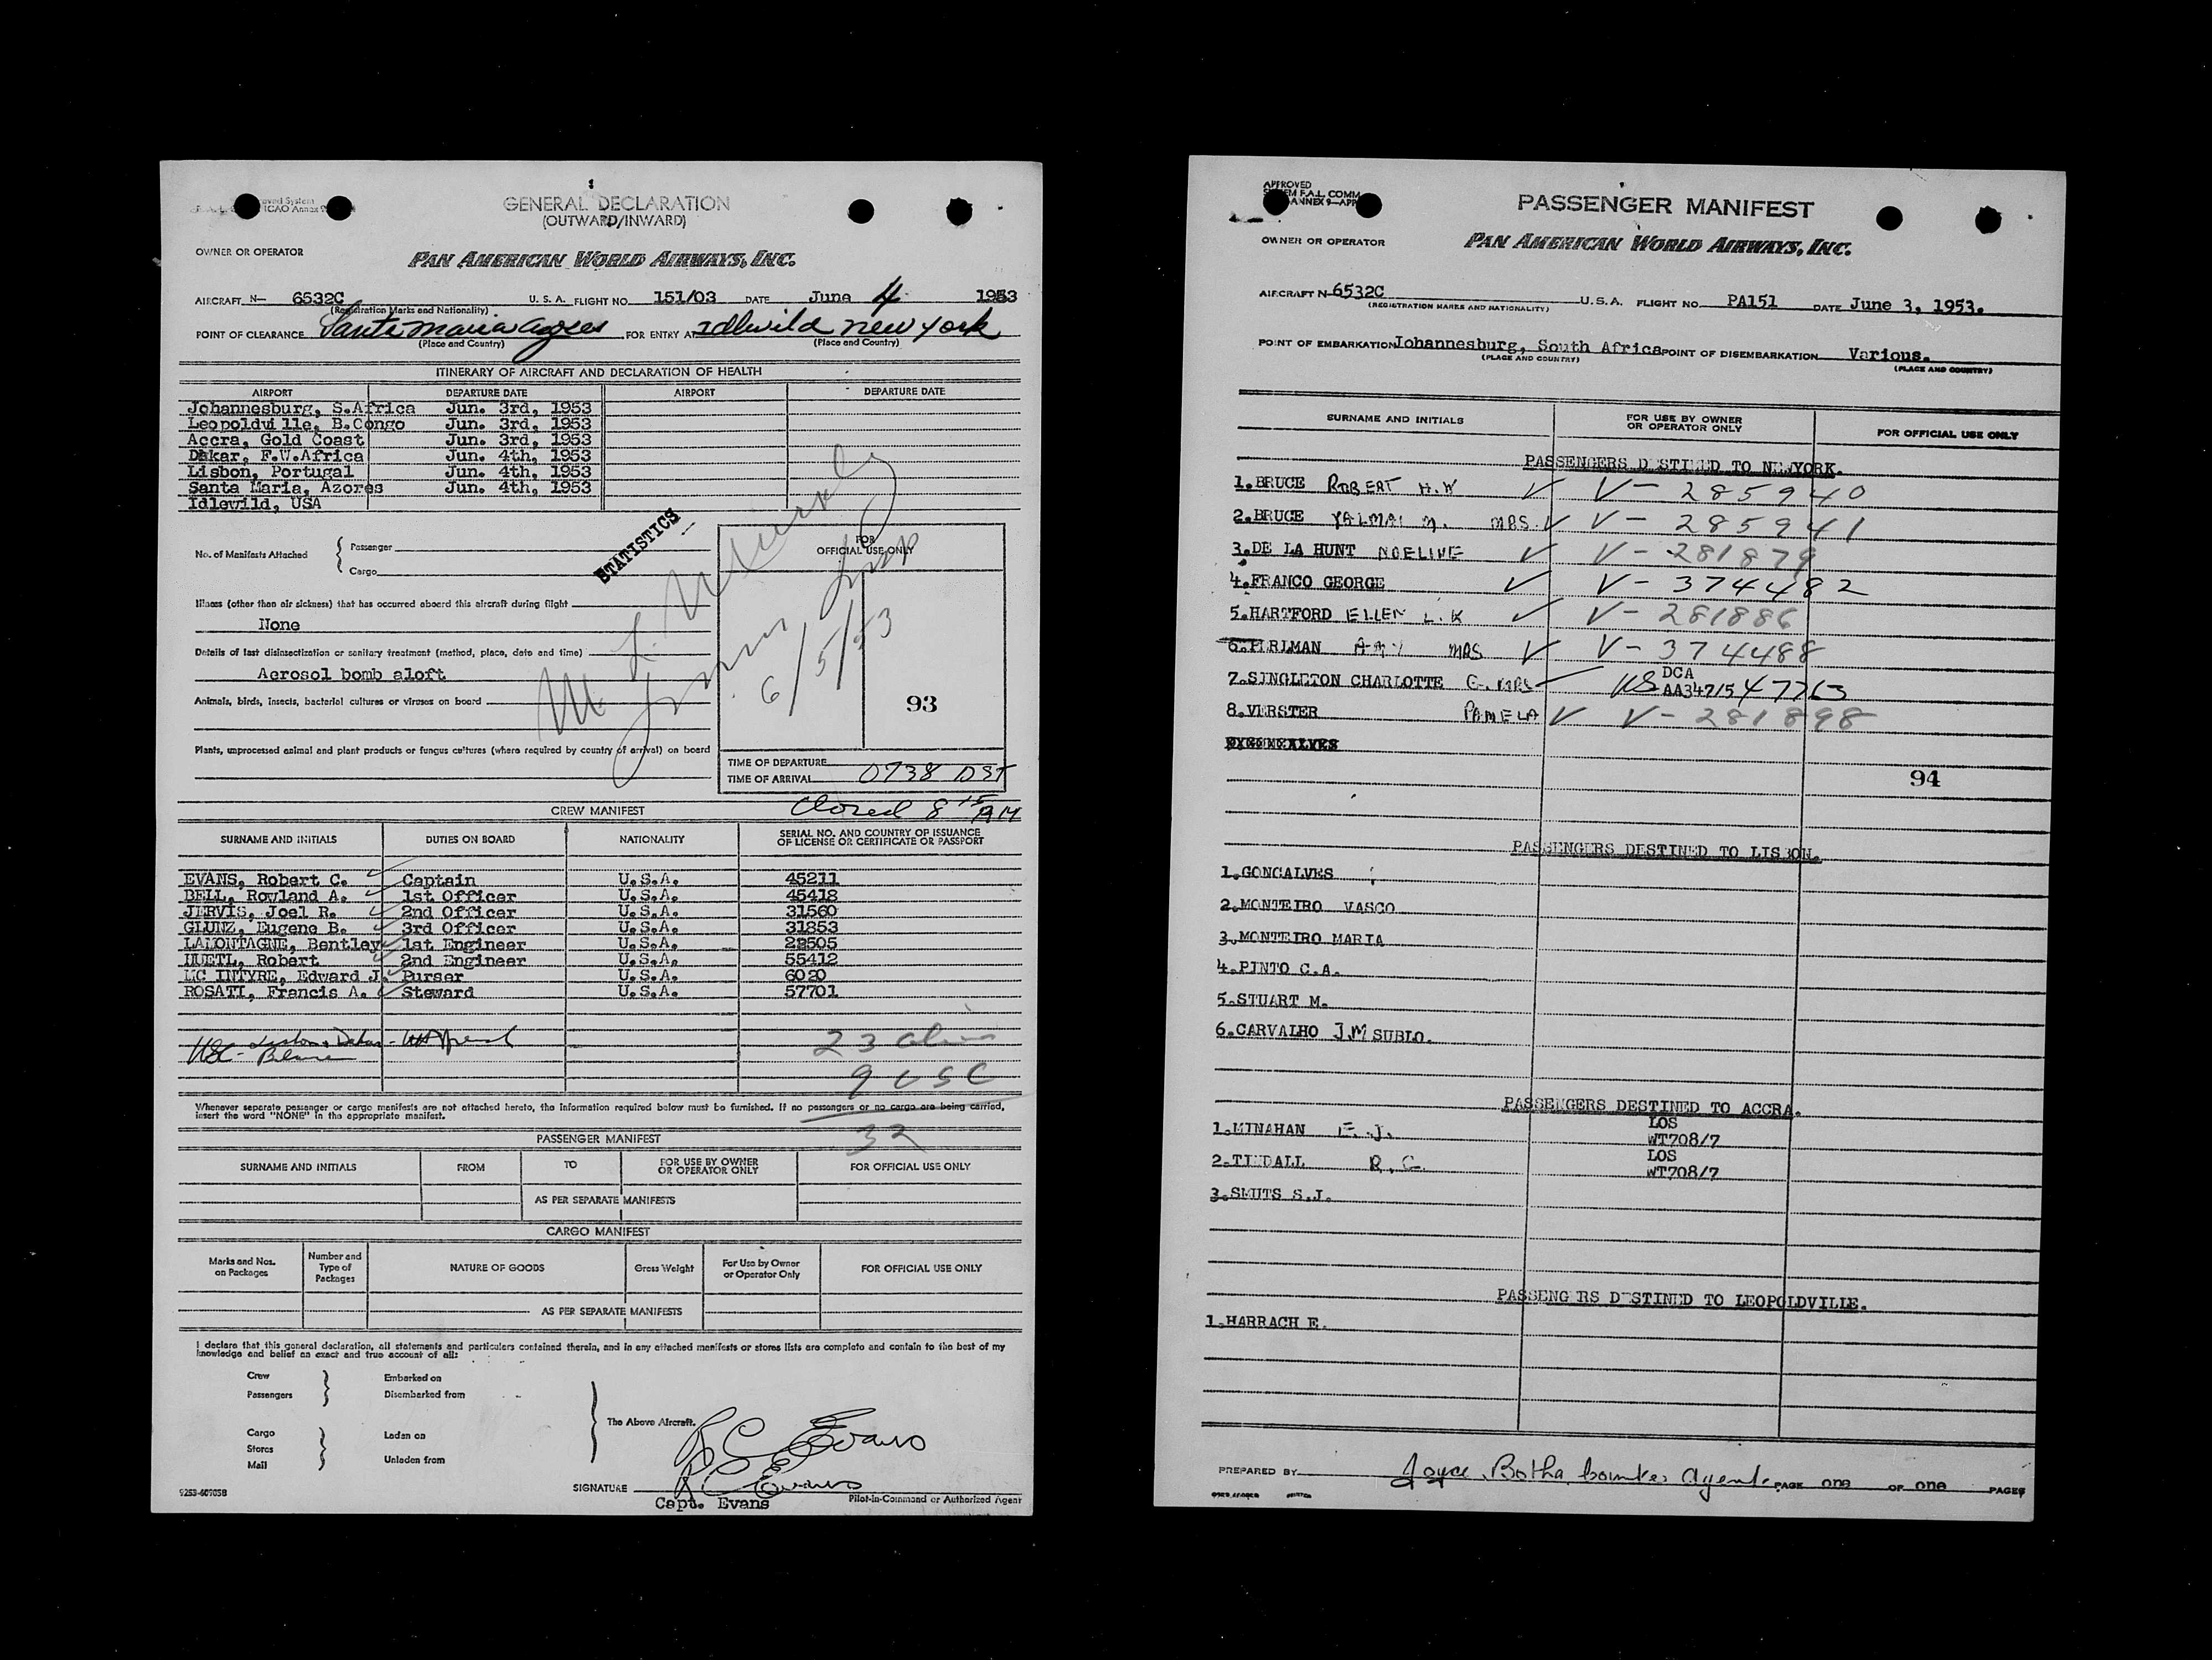 GENERAL DECLARATION
(OUTWARD/INWARD)
OWNER OR OPERATOR
PAN AMERICAN WORLD AIRWAYS, INC.
AIRCRAFT N- 6532C U. S. A. FLIGHT NO. 151/03 DATE June 4 1953
(Registration Marks and Nationality)
POINT OF CLEARANCE Santa Maria Azores FOR ENTRY AT Idlewild New York
(Place and Country) (Place and Country)
ITINERARY OF AIRCRAFT AND DECLARATION OF HEALTH
AIRPORT DEPARTURE DATE AIRPORT DEPARTURE DATE
Johannesburg, S.Africa Jun. 3rd, 1953
Leopoldville, B.Congo Jun. 3rd, 1953
Accra, Gold Coast Jun. 3rd, 1953
Dakar, F.W.Africa Jun. 4th, 1953
Lisbon, Portugal Jun. 4th, 1953
Santa Maria, Azores Jun. 4th, 1953
Idlewild, USA
STATISTICS
No. of Manifests Attached
Passenger
Cargo
FOR
OFFICIAL USE ONLY
6/5/53
93
Illness (other than air sickness) that has occurred aboard this aircraft during flight
None
Details of last disinsectization or sanitary treatment (method, place, date and time)
Aerosol bomb aloft
Animals, birds, insects, bacterial cultures or viruses on board
Plants, unprocessed animal and plant products or fungus cultures (where required by country of arrival) on board
TIME OF DEPARTURE
TIME OF ARRIVAL 0738 DST
Closed 8 15 AM
CREW MANIFEST
SURNAME AND INITIALS DUTIES ON BOARD NATIONALITY SERIAL NO. AND COUNTRY OF ISSUANCE OF LICENSE OR CERTIFICATE OR PASSPORT
EVANS, Robert C. Captain U.S.A. 45211
BELL, Rowland A. 1st Officer U.S.A. 45418
JERVIS, Joel R. 2nd Officer U.S.A. 31560
GLUNZ, Eugene B. 3rd Officer U.S.A. 31853
LAMONTAGNE, Bentley 1st Engineer U.S.A. 22505
HUETL, Robert 2nd Engineer U.S.A. 55412
MC INTYRE, Edward J. Purser U.S.A. 6020
ROSATI, Francis A. Steward U.S.A. 57701
23
9 USC
32
Whenever separate passenger or cargo manifests are not attached hereto, the information required below must be furnished. If no passengers or no cargo are being carried,
insert the word "NONE" in the appropriate manifest.
PASSENGER MANIFEST
SURNAME AND INITIALS FROM TO FOR USE BY OWNER OR OPERATOR ONLY FOR OFFICIAL USE ONLY
AS PER SEPARATE MANIFESTS
CARGO MANIFEST
Marks and Nos. on Packages Number and Type of Packages NATURE OF GOODS Gross Weight For Use by Owner or Operator Only FOR OFFICIAL USE ONLY
AS PER SEPARATE MANIFESTS
I declare that this general declaration, all statements and particulars contained therein, and in any attached manifests or stores lists are complete and contain to the best of my
knowledge and belief an exact and true account of all:
Crew
Passengers
Embarked on
Disembarked from
The Above Aircraft.
Cargo
Stores
Mail
Laden on
Unladen from
R C Evans
SIGNATURE R C Evans
Capt. Evans Pilot-in-Command or Authorized Agent
APPROVED
PASSENGER MANIFEST
OWNER OR OPERATOR
PAN AMERICAN WORLD AIRWAYS, INC.
AIRCRAFT N-6532C U. S. A. FLIGHT NO. PA151 DATE June 3, 1953.
(REGISTRATION MARKS AND NATIONALITY)
POINT OF EMBARKATION Johannesburg, South Africa POINT OF DISEMBARKATION Various.
(PLACE AND COUNTRY) (PLACE AND COUNTRY)
SURNAME AND INITIALS FOR USE BY OWNER OR OPERATOR ONLY FOR OFFICIAL USE ONLY
PASSENGERS DESTINED TO NEWYORK.
1.BRUCE ROBERT H.W V- 285940
2.BRUCE YALMAI M. MRS. V- 285941
3.DE LA HUNT NOELINE V- 281879
4.FRANCO GEORGE V- 374482
5.HARTFORD ELLEN L.K V- 281886
6.PERLMAN AMY MRS V- 374488
7.SINGLETON CHARLOTTE G. MRS US DCA AA347/5 47763
8.VERSTER PAMELA V- 281898
94
PASSENGERS DESTINED TO LISBON.
1.GONCALVES
2.MONTEIRO VASCO
3.MONTEIRO MARIA
4.PINTO C.A.
5.STUART M.
6.CARVALHO J.M SUBLO.
PASSENGERS DESTINED TO ACCRA.
1.MINAHAN E.J. LOS WT708/7
2.TINDALL R.C. LOS WT708/7
3.SMUTS S.J.
PASSENGERS DESTINED TO LEOPOLDVILLE.
1.HARRACH E.
PREPARED BY Joyce Botha Counter Agent. PAGE one OF one PAGES